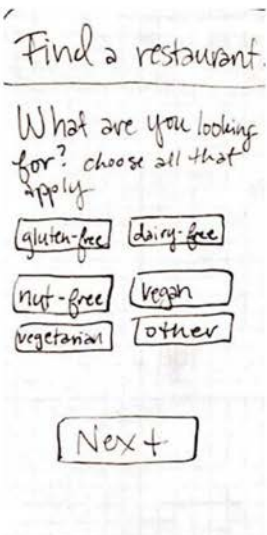 Find a restaurant.
What are you looking
for? choose all that
apply
gluten-free dairy-free
nut-free vegan
vegetarian other
Next